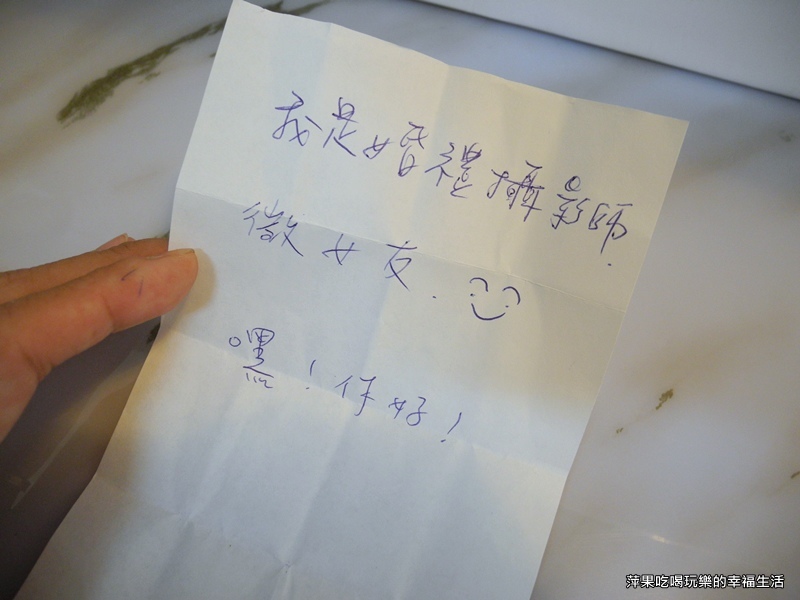 我是婚禮攝影師.
徵女友.
嘿!你好!
萍果吃喝玩樂的幸福生活